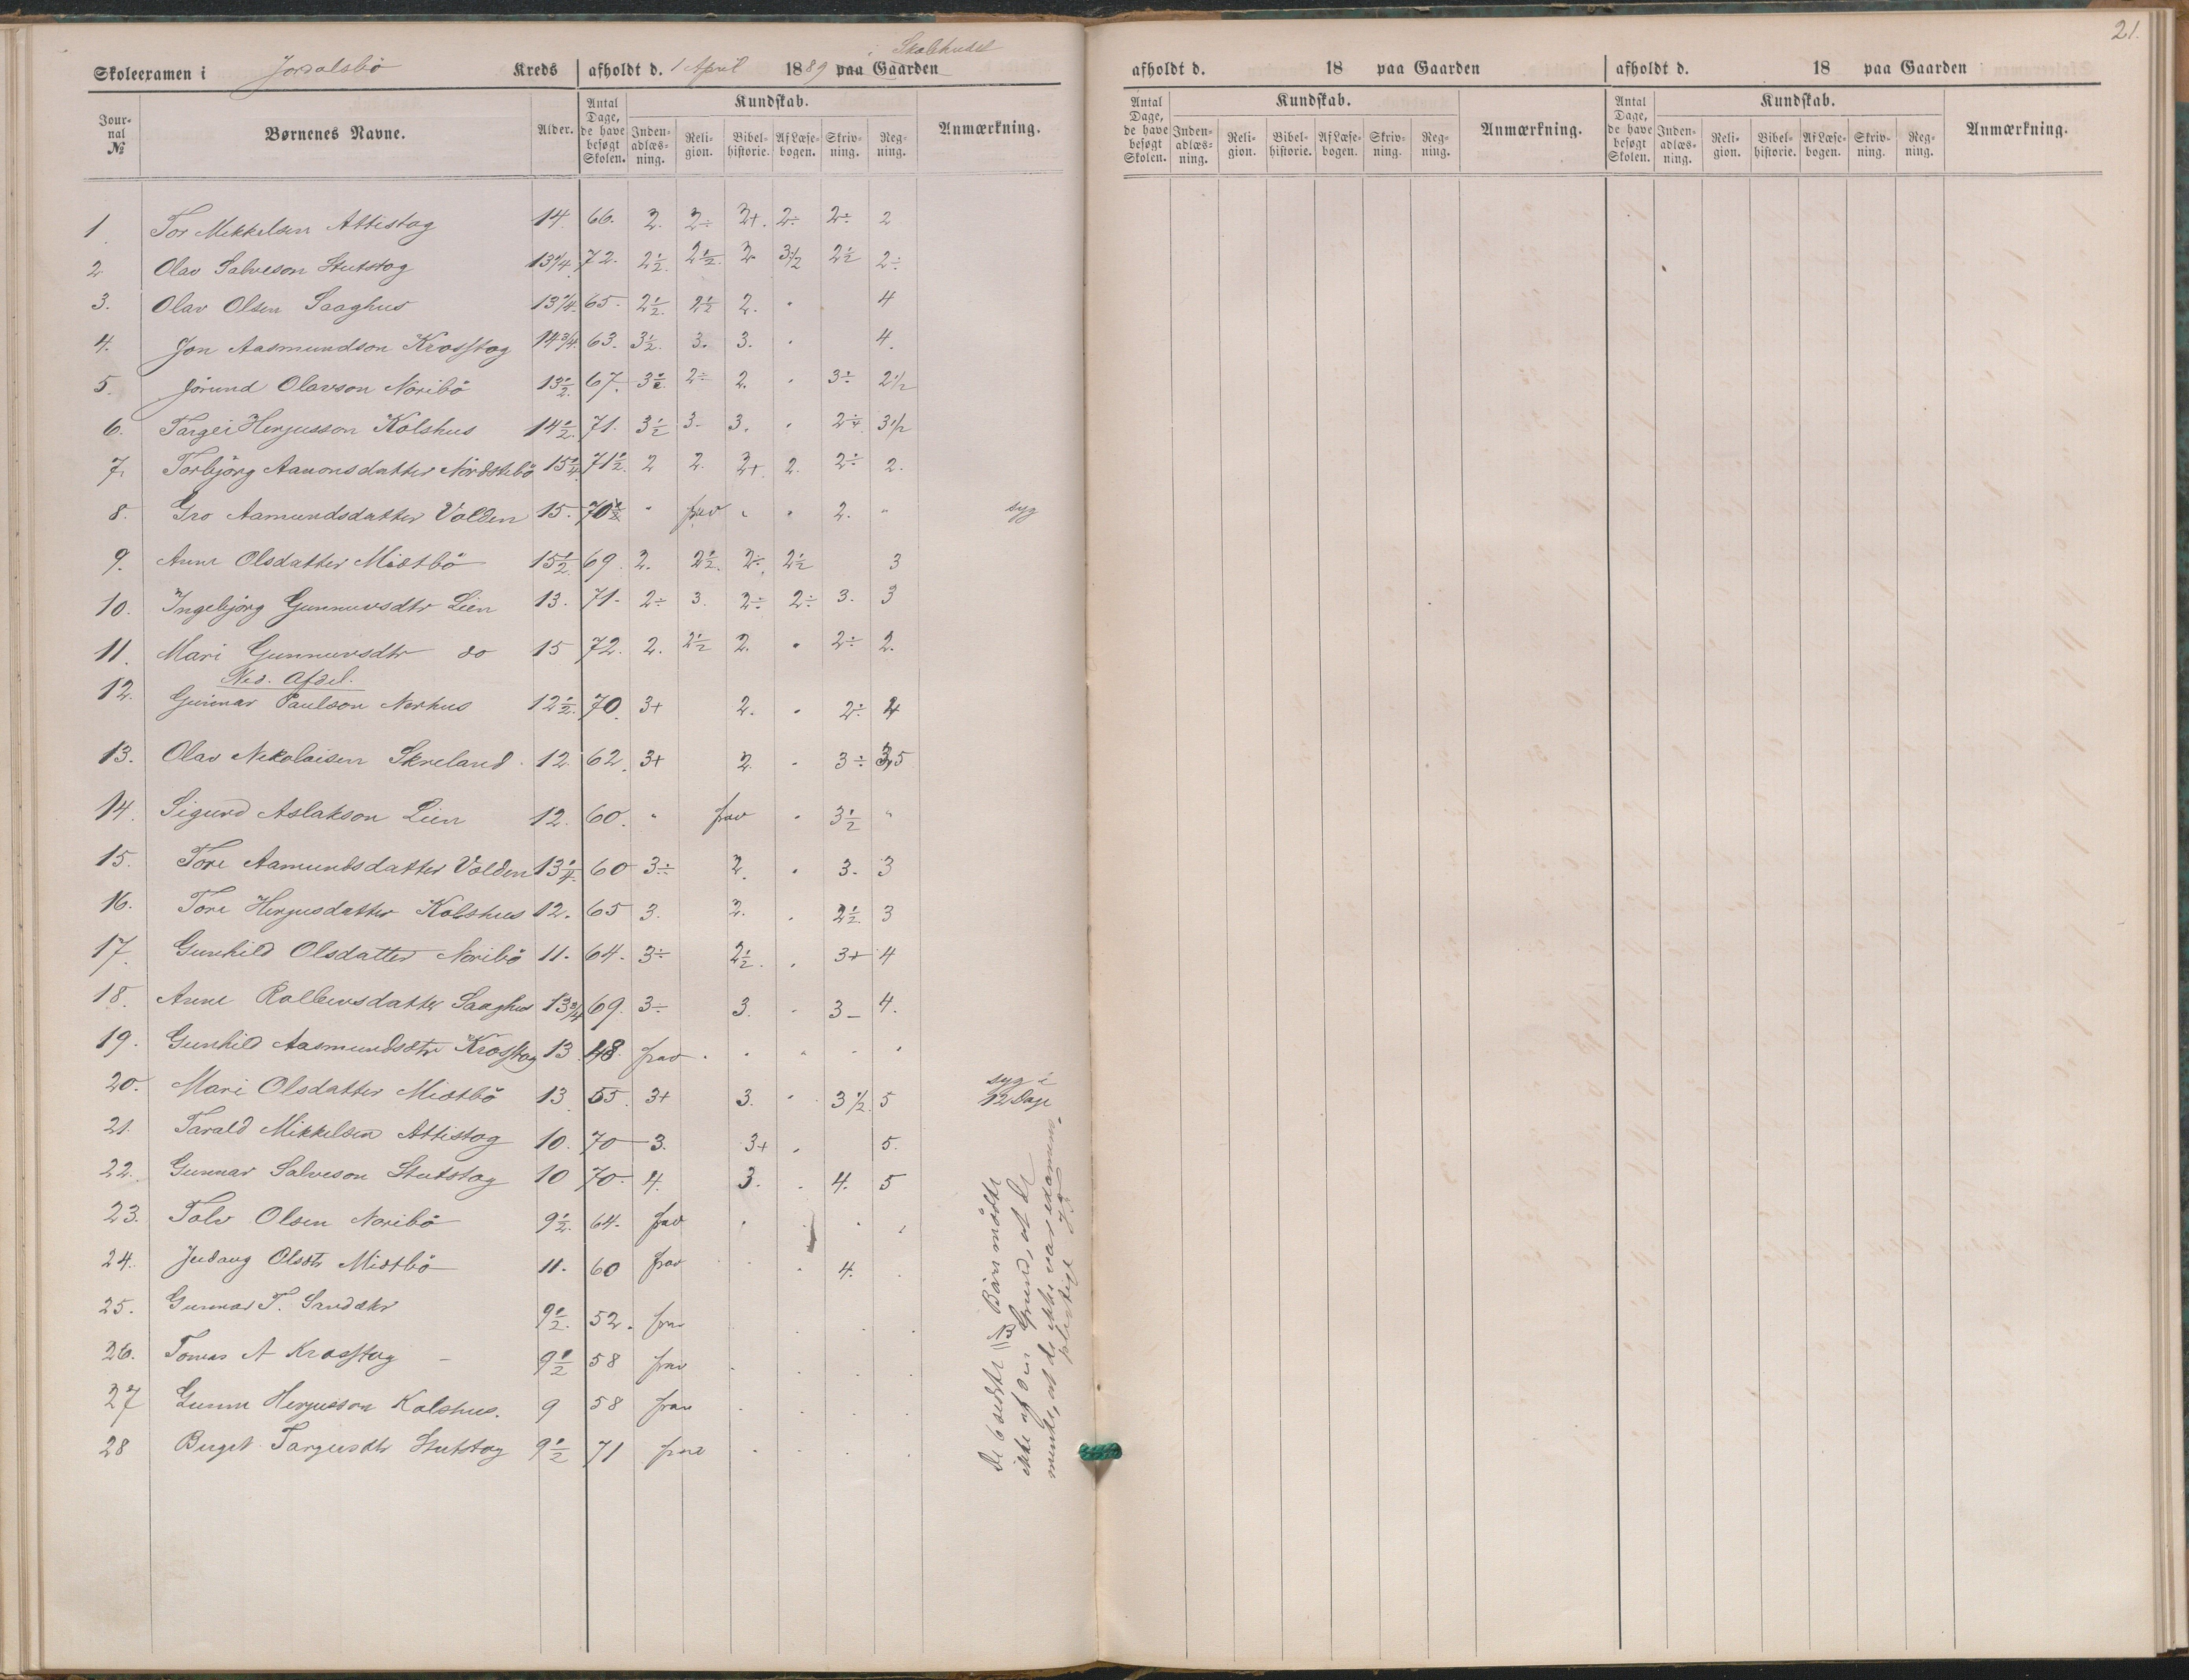 21.
Skoleexamen i Jordalsbö Kreds afholdt d. 1 April 1889 paa Gaarden i Skolehuset
Jour-nal № Børnenes Navne. Alder. Antal Dage, de have besøgt Skolen. Kundskab. Inden-adlæs-ning. Reli-gion. Bibel-historie. Af Læse-bogen. Skriv-ning. Reg-ning. Anmærkning.
1 Tor Mikkelsen Attistog 14. 66. 2. 2÷ 2+. 2÷ 2÷ 2
2 Olav Salveson Stutstog 13 3/4. 72. 2 1/2. 2 1/2. 2. 3 1/2 2 1/2 2÷
3. Olav Olsen Saaghus 13 1/4. 65. 2 1/2. 2 1/2 2. " 4
4. Jon Aasmundson Krosstog 14 3/4. 63. 3 1/2. 3. 3. " 4.
5. Jörund Olavson Noribö 13 1/2. 67. 3 1/2. 2÷ 2. " 3÷ 2 1/2
6. Targei Herjusson Kolshus 14 1/2. 71. 3 1/2 3- 3. " 2÷ 3 1/2
7. Torbjörg Aanonsdatter Nordstebö 15 1/4. 71 1/2. 2 2. 2+. 2. 2÷ 2.
8. Gro Aamundsdatter Volden 15. 70 1/2 " frav " " 2. " syg
9. Anne Olsdatter Midtbö 15 1/2 69. 2. 2 1/2. 2÷. 2 1/2 3
10. Ingebjörg Gunnuvsdtr Lien 13. 71. 2÷ 3. 2÷ 2÷ 3. 3
11. Mari Gunnuvsdtr do 15 72. 2. 2 1/2 2. " 2÷ 2.
Ned. Afdel.
12. Gunnar Paulson Norhus 12 1/2. 70. 3+ 2. " 2÷ 4
13. Olav Nikolaisen Skreland 12. 62. 3+ 2. " 3÷ 3,5
14. Sigurd Aslakson Lien 12. 60. " frav " 3 1/2 "
15. Tore Aamundsdatter Volden 13 1/4. 60 3÷ 2. " 3. 3
16. Tore Herjusdatter Kolshus 12. 65 3. 2. " 2 1/2. 3
17. Gunhild Olsdatter Noribö 11. 64. 3÷ 2 1/2. " 3+ 4
18. Anne Rolleivsdatter Saaghus 13 3/4 69. 3÷ 3. " 3- 4.
19. Gunhild Aasmundsdtr Krosstog 13. 48. frav " " " " "
20. Mari Olsdatter Midtbö 13. 55. 3+ 3. " 3 1/2. 5 syg i 12 Dage
21. Tarald Mikkelsen Attistog 10. 70 3. 3+ " 5.
22. Gunnar Salveson Stutstog 10 70. 4. 3. " 4. 5
23. Tolv Olsen Noribö 9 1/2. 64. frav " " "
24. Judaug Olsdtr Midtbö 11. 60 frav " " 4. "
25. Gunnar T. 9 1/2. 52. frav
26. Tomas A Krosstog - 9 1/2 58 frav
27 Gunnu Herjusson Kolshus. 9 58 frav
28 Birgit Targeisdtr Stutstog 9 1/2 71 frav
De 6 sidste NB Börn mødte
ikke af den Grund, at de
mente, at de ikke var examens-
pligtige
afholdt d. 18 paa Gaarden
Antal Dage, de have besøgt Skolen. Kundskab. Inden-adlæs-ning. Reli-gion. Bibel-historie. Af Læse-bogen. Skriv-ning. Reg-ning. Anmærkning.
afholdt d. 18 paa Gaarden
Antal Dage, de have besøgt Skolen. Kundskab. Inden-adlæs-ning. Reli-gion. Bibel-historie. Af Læse-bogen. Skriv-ning. Reg-ning. Anmærkning.